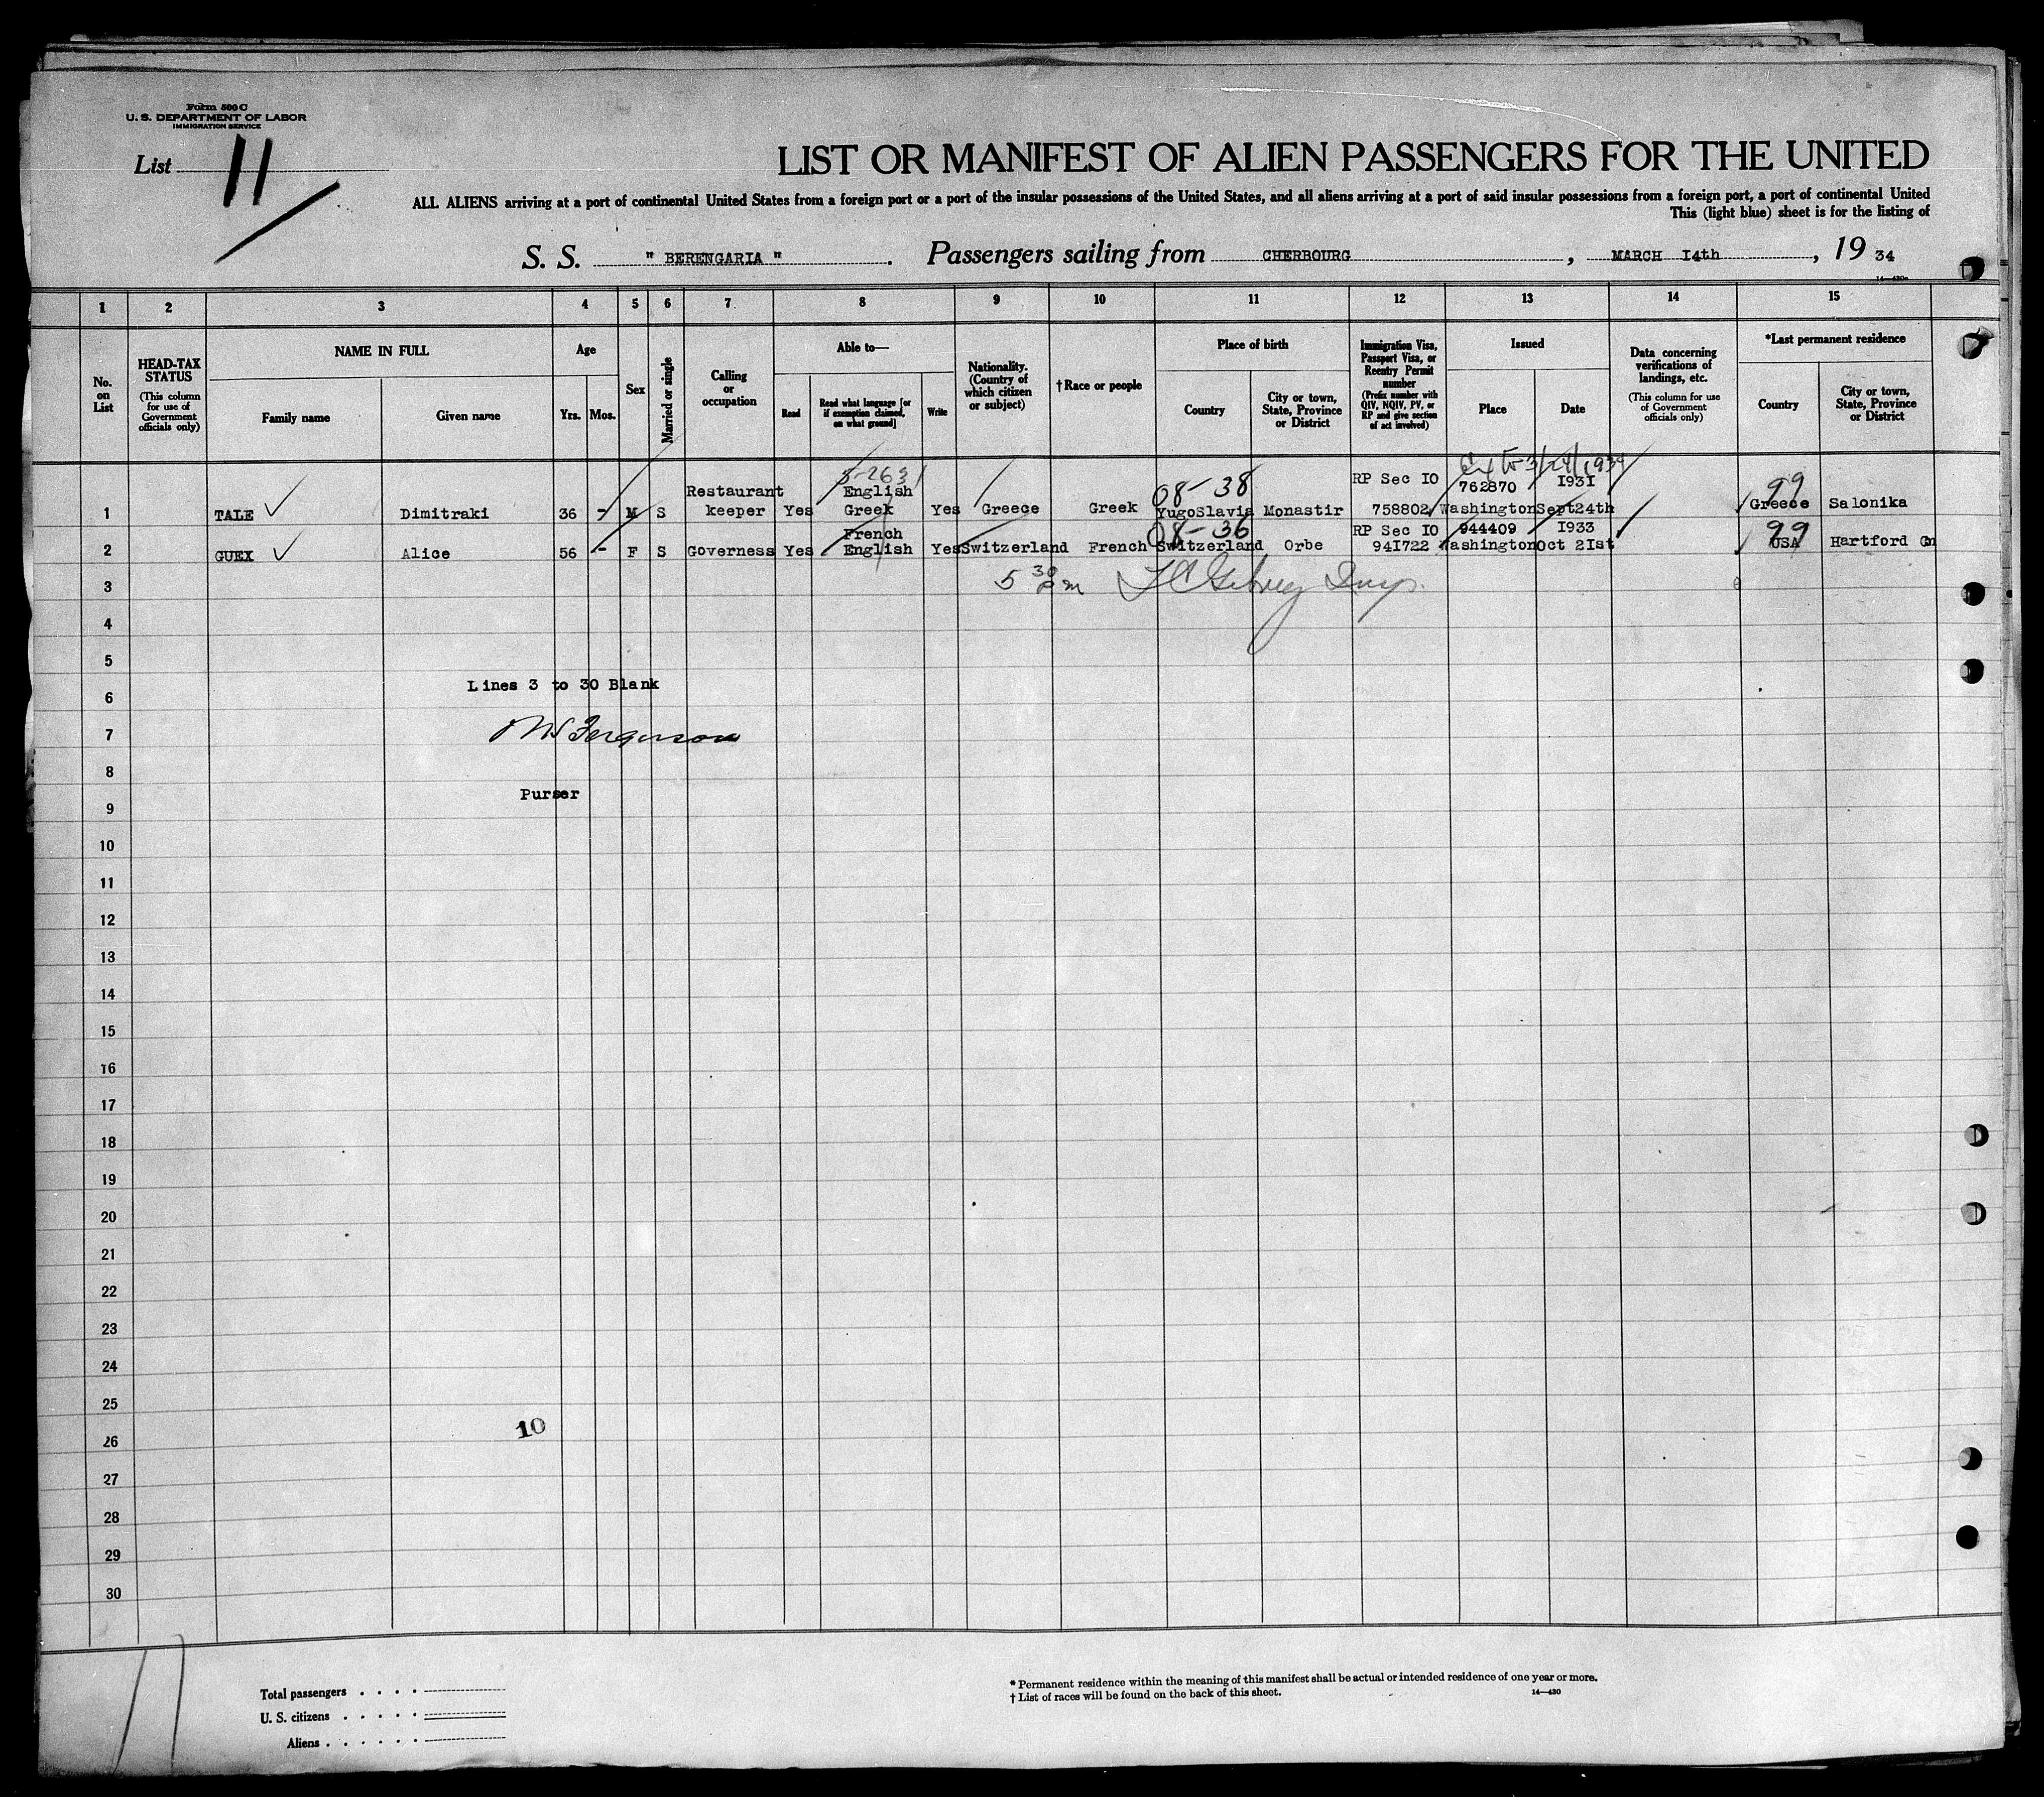 Form 500 C
U. S. DEPARTMENT OF LABOR
IMMIGRATION SERVICE
List 11
LIST OR MANIFEST OF ALIEN PASSENGERS FOR THE UNITED
ALL ALIENS arriving at a port of continental United States from a foreign port or a port of the insular possessions of the United States, and all aliens arriving at a port of said insular possessions from a foreign port, a port of continental United
This (light blue) sheet is for the listing of
S. S. " BERENGARIA " . Passengers sailing from CHERBOURG , MARCH I4th , 19 34
14—430
1 2 3 4 5 6 7 8 9 10 11 12 13 14 15
No. on List
HEAD-TAX STATUS
(This column for use of Government officials only)
NAME IN FULL
Family name Given name
Age
Yrs. Mos.
Sex
Married or single
Calling or occupation
Able to—
Read Read what language [or if exemption claimed, on what ground] Write
Nationality. (Country of which citizen or subject)
†Race or people
Place of birth
Country City or town, State, Province or District
Immigration Visa, Passport Visa, or Reentry Permit number
(Prefix number with QIV, NQIV, PV, or RP and give section of act involved)
Issued
Place Date
Data concerning verifications of landings, etc.
(This column for use of Government officials only)
*Last permanent residence
Country City or town, State, Province or District
5-2631 Ext to 3/24/1934
Restaurant English 08-38 RP Sec IO 762870 I93I 99
1 TALE Dimitraki 36 - M S keeper Yes Greek Yes Greece Greek YugoSlavia Monastir 758802 Washington Sept24th Greece Salonika
French 08-36 RP Sec IO 944409 I933 99
2 GUEX Alice 56 - F S Governess Yes English Yes Switzerland French Switzerland Orbe 94I722 Washington Oct 2Ist USA Hartford Cn
3 5 30 pm Insp.
4
5
6 Lines 3 to 30 Blank
7 Ferguson
8
9 Purser
10
11
12
13
14
15
16
17
18
19
20
21
22
23
24
25
26 10
27
28
29
30
Total passengers
U. S. citizens
Aliens
* Permanent residence within the meaning of this manifest shall be actual or intended residence of one year or more.
† List of races will be found on the back of this sheet.
14—430